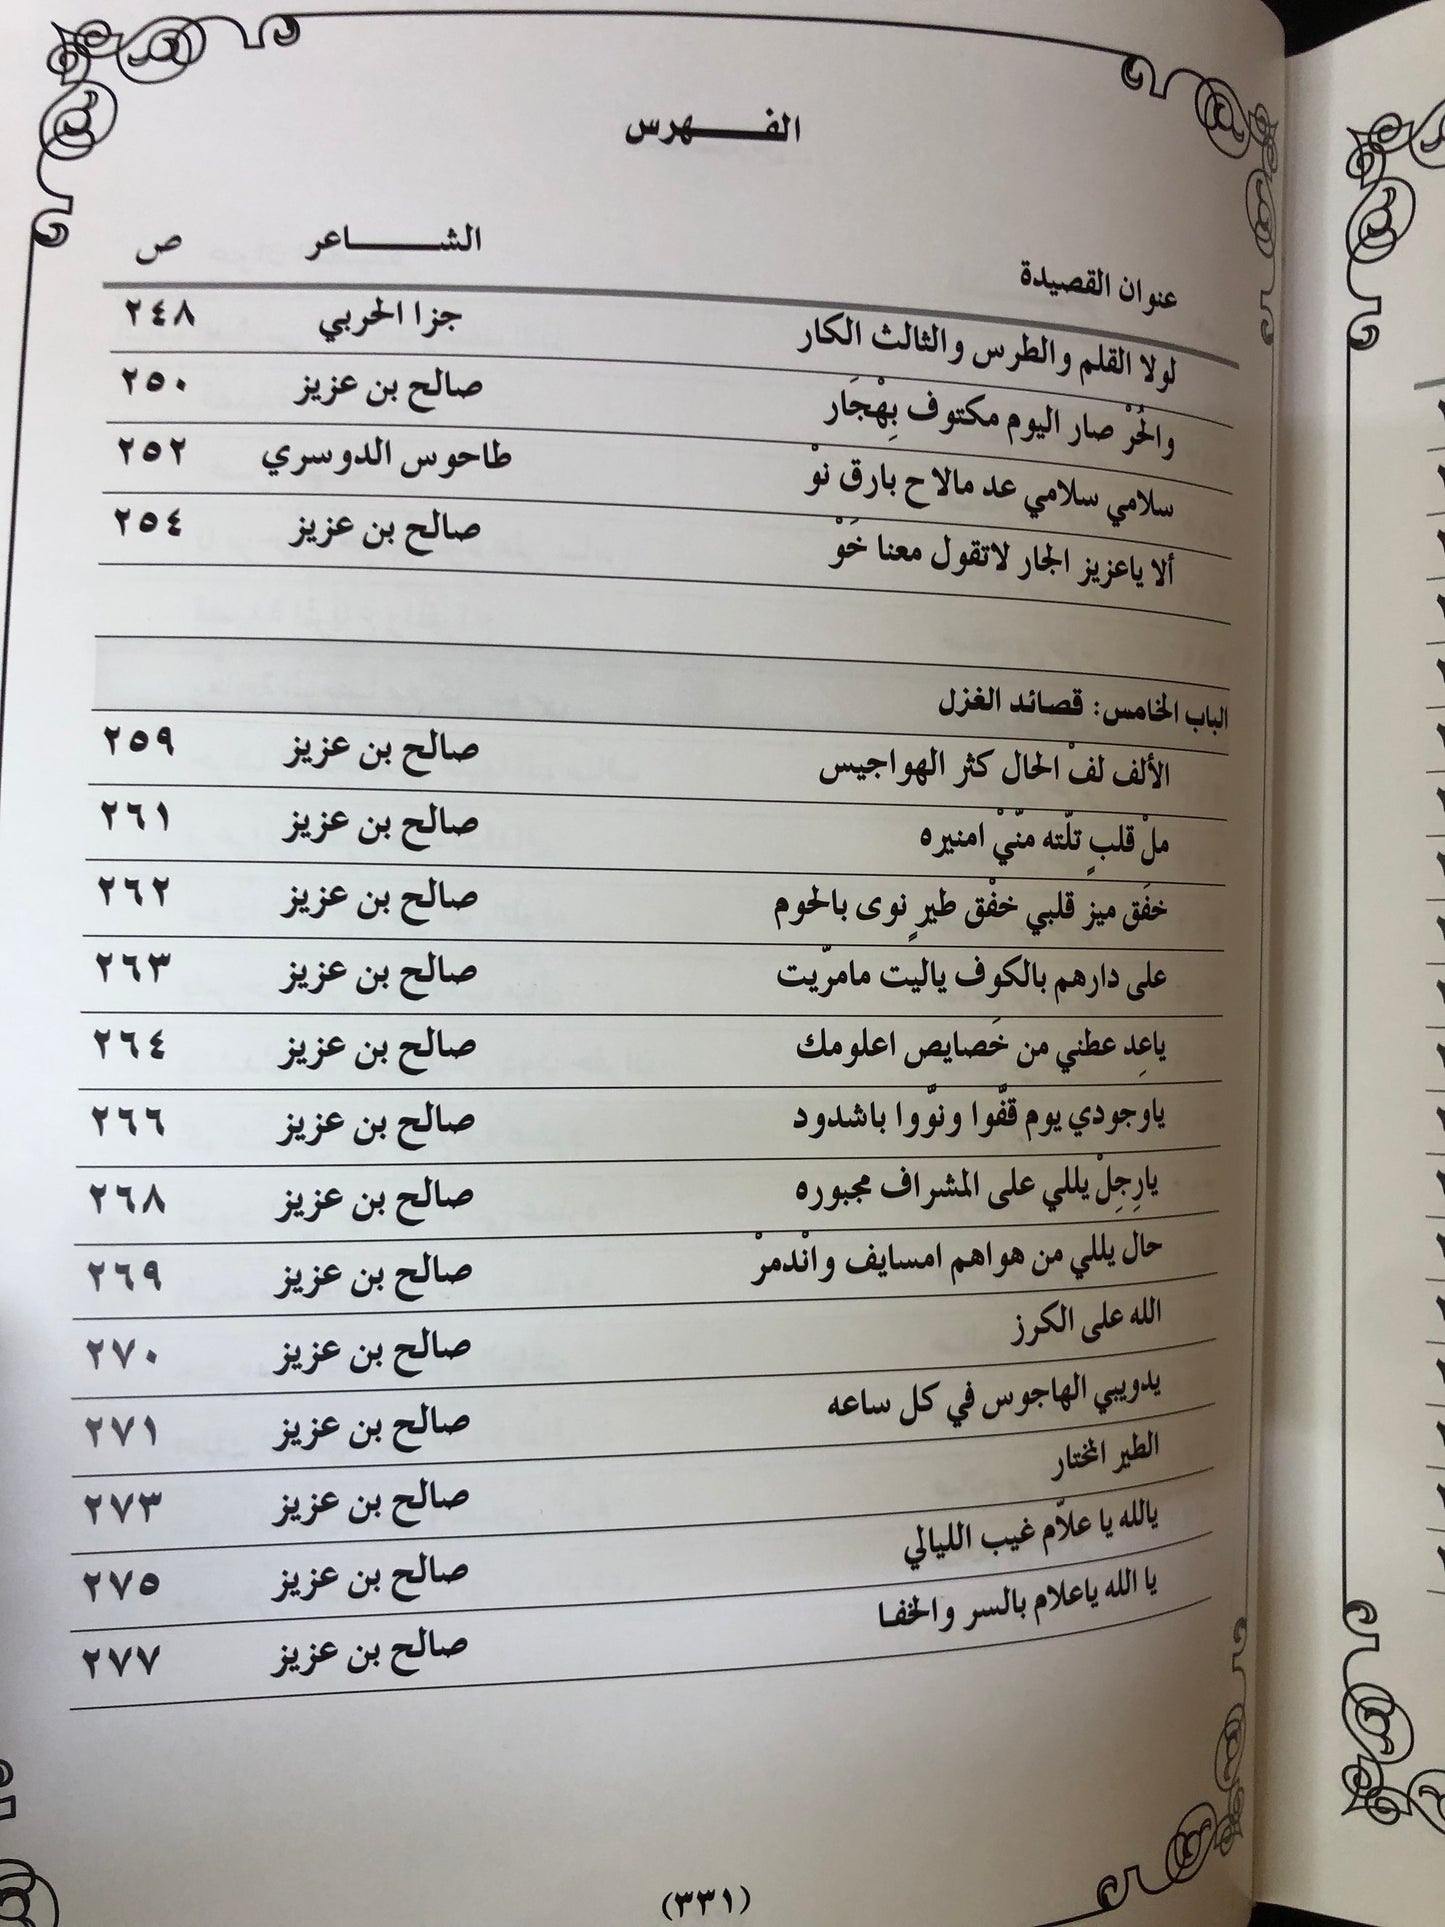 الفـــــهرس
عنوان القصيدة الشـــــاعر ص
لولا القلم والطرس والثالث الكار جزا الحربي ٢٤٨
والحُرْ صار اليوم مكتوف بِهْجَار صالح بن عزيز ٢٥٠
سلامي سلامي عد مالاح بارق نوْ طاحوس الدوسري ٢٥٢
ألا ياعزيز الجار لاتقول معنا خَوْ صالح بن عزيز ٢٥٤
الباب الخامس: قصائد الغزل
الألف لفْ الحال كثر الهواجيس صالح بن عزيز ٢٥٩
ملْ قلبٍ تلّته منّيْ امنيره صالح بن عزيز ٢٦١
خفَق ميز قلبي خفْق طيرٍ نوى بالحوم صالح بن عزيز ٢٦٢
على دارهم بالكوف ياليت مامرّيت صالح بن عزيز ٢٦٣
ياعِد عطني من خَصايص اعلومك صالح بن عزيز ٢٦٤
ياوجودي يوم قفّوا ونوّوا باشدود صالح بن عزيز ٢٦٦
يارِجِلْ يللي على المشراف مجبوره صالح بن عزيز ٢٦٨
حال يللي من هواهم امسايف وانْدمرْ صالح بن عزيز ٢٦٩
الله على الكرز صالح بن عزيز ٢٧٠
يدويبي الهاجوس في كل ساعه صالح بن عزيز ٢٧١
الطير المختار صالح بن عزيز ٢٧٣
يالله يا علاّم غيب الليالي صالح بن عزيز ٢٧٥
يا الله ياعلام بالسر والخفا صالح بن عزيز ٢٧٧
(٣٣١)